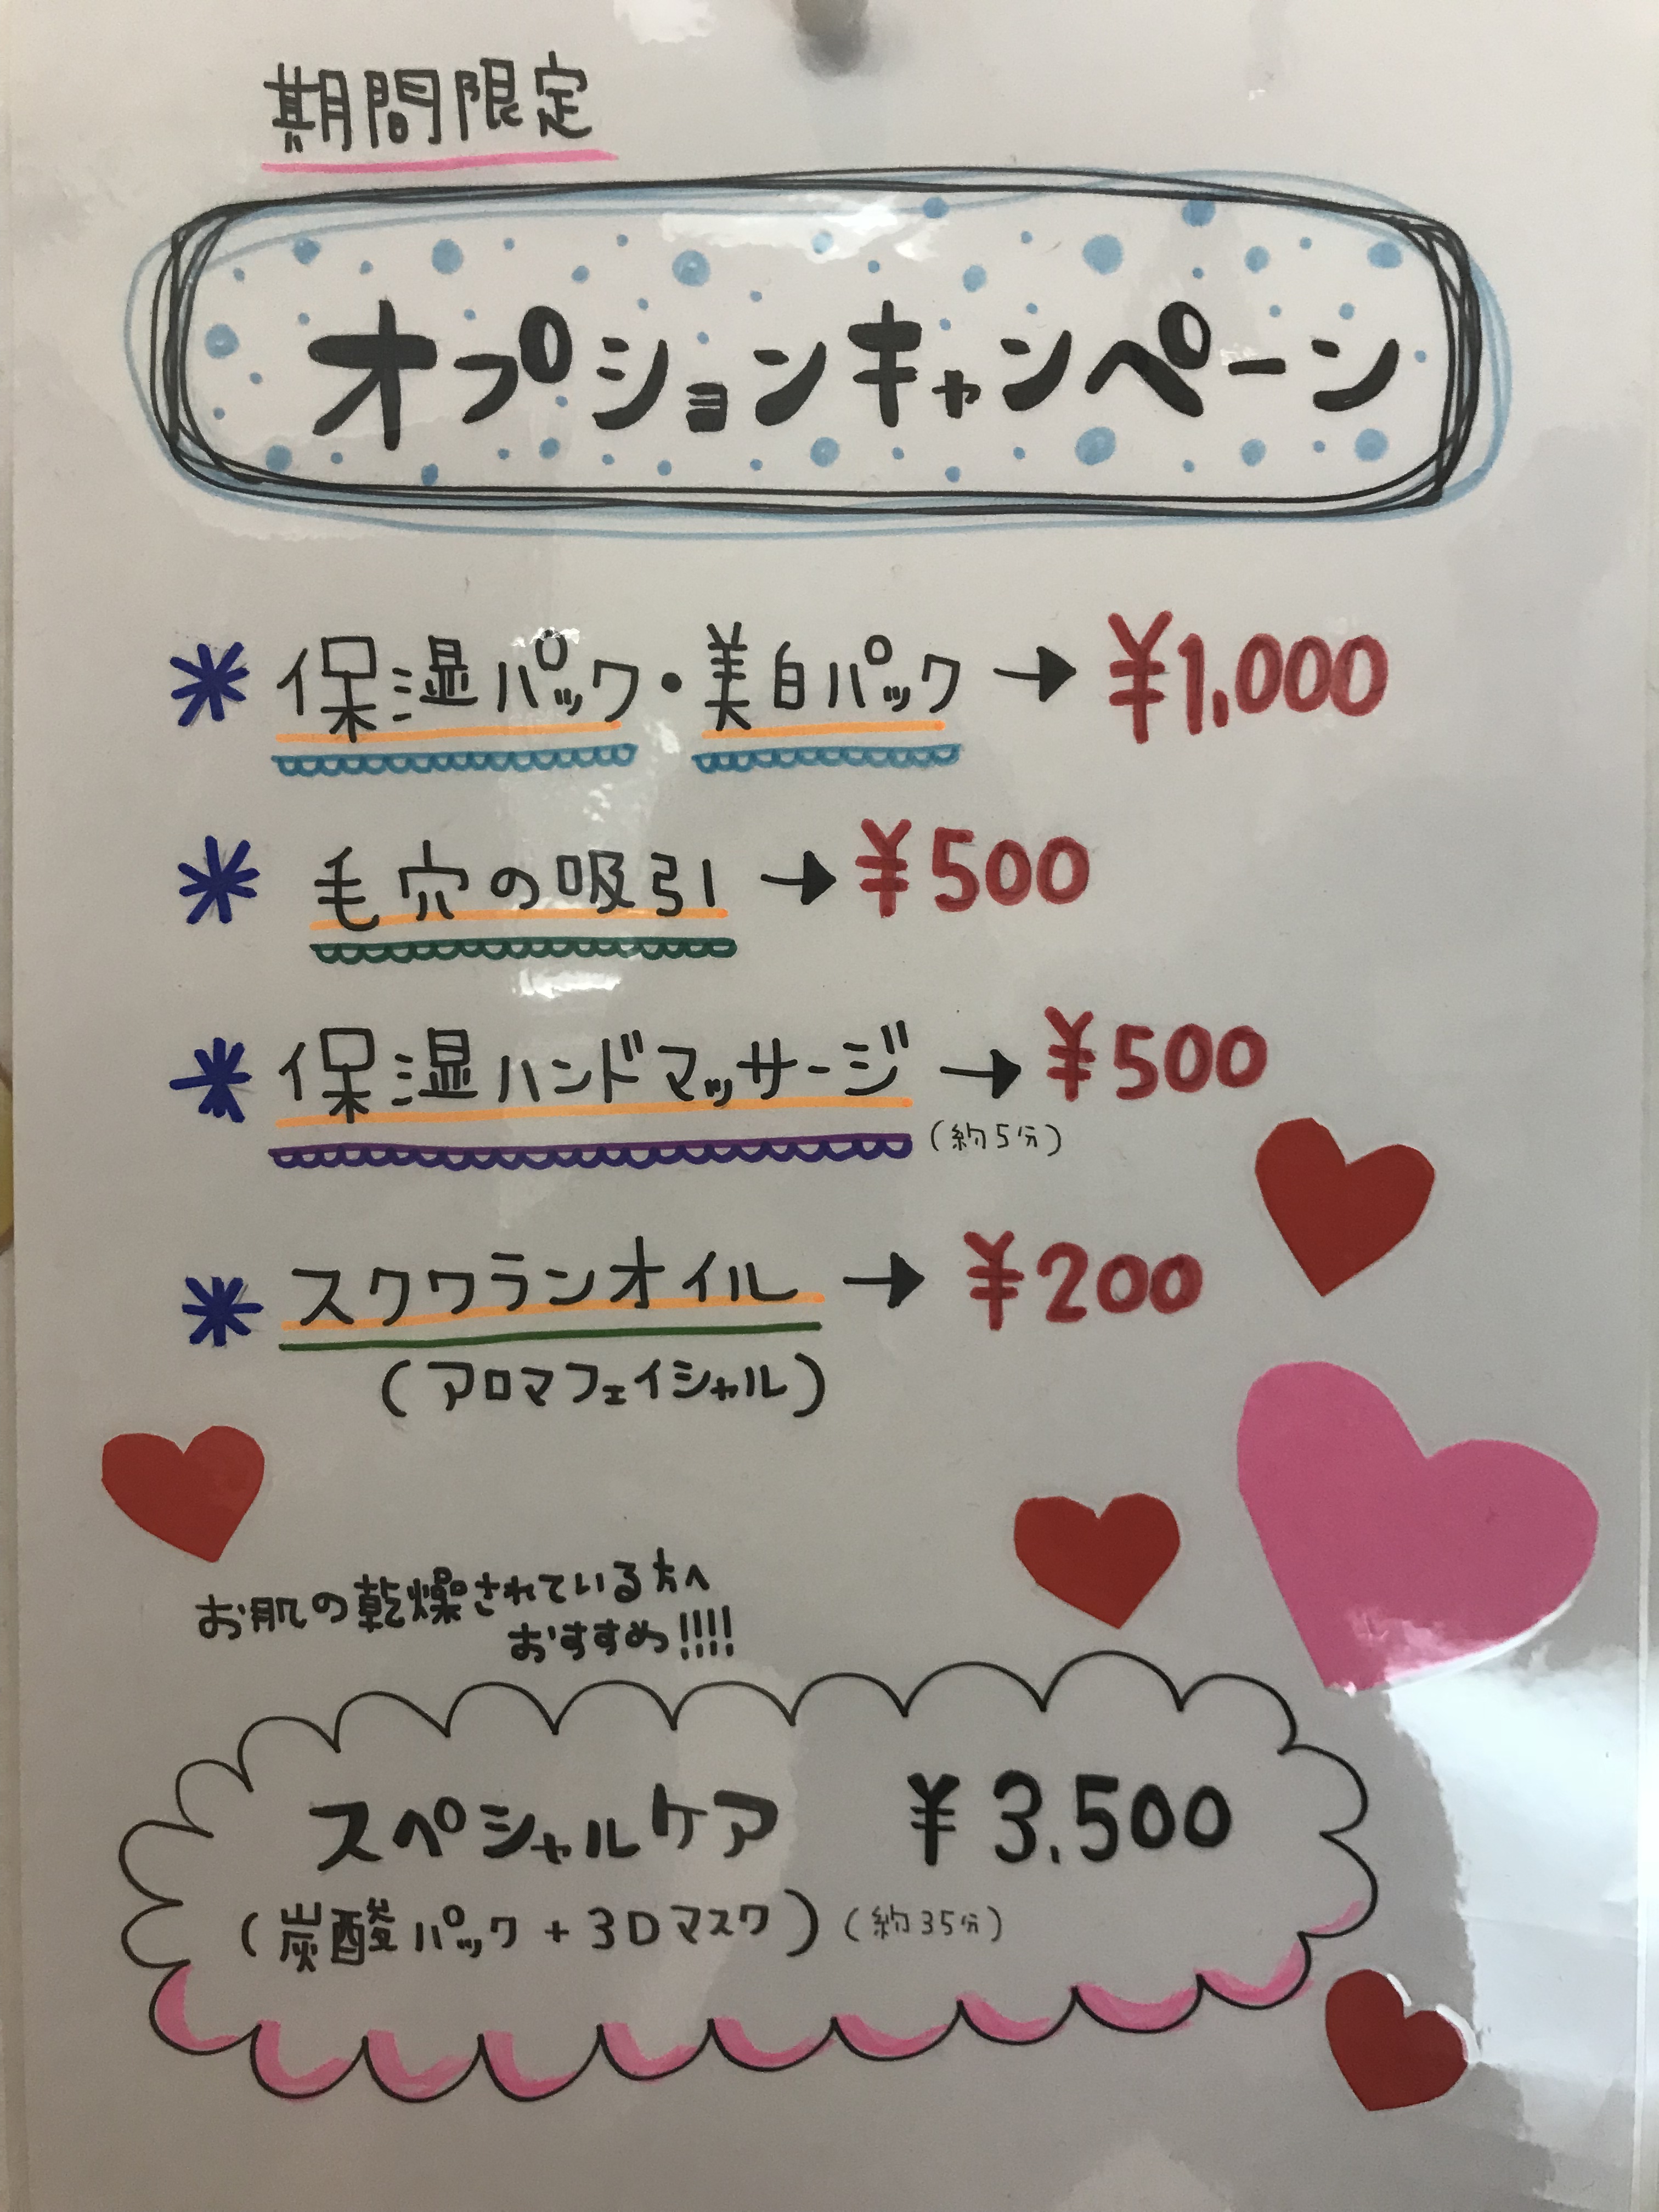 期間限定
オプションキャンペーン
* 保湿パック・美白パック → ¥1,000
* 毛穴の吸引 → ¥500
* 保湿ハンドマッサージ → ¥500
(約5分)
* スクワランオイル → ¥200
(アロマフェイシャル)
お肌の乾燥されている方へ
おすすめ!!!!
スペシャルケア ¥3.500
(炭酸パック+3Dマスク)(約35分)